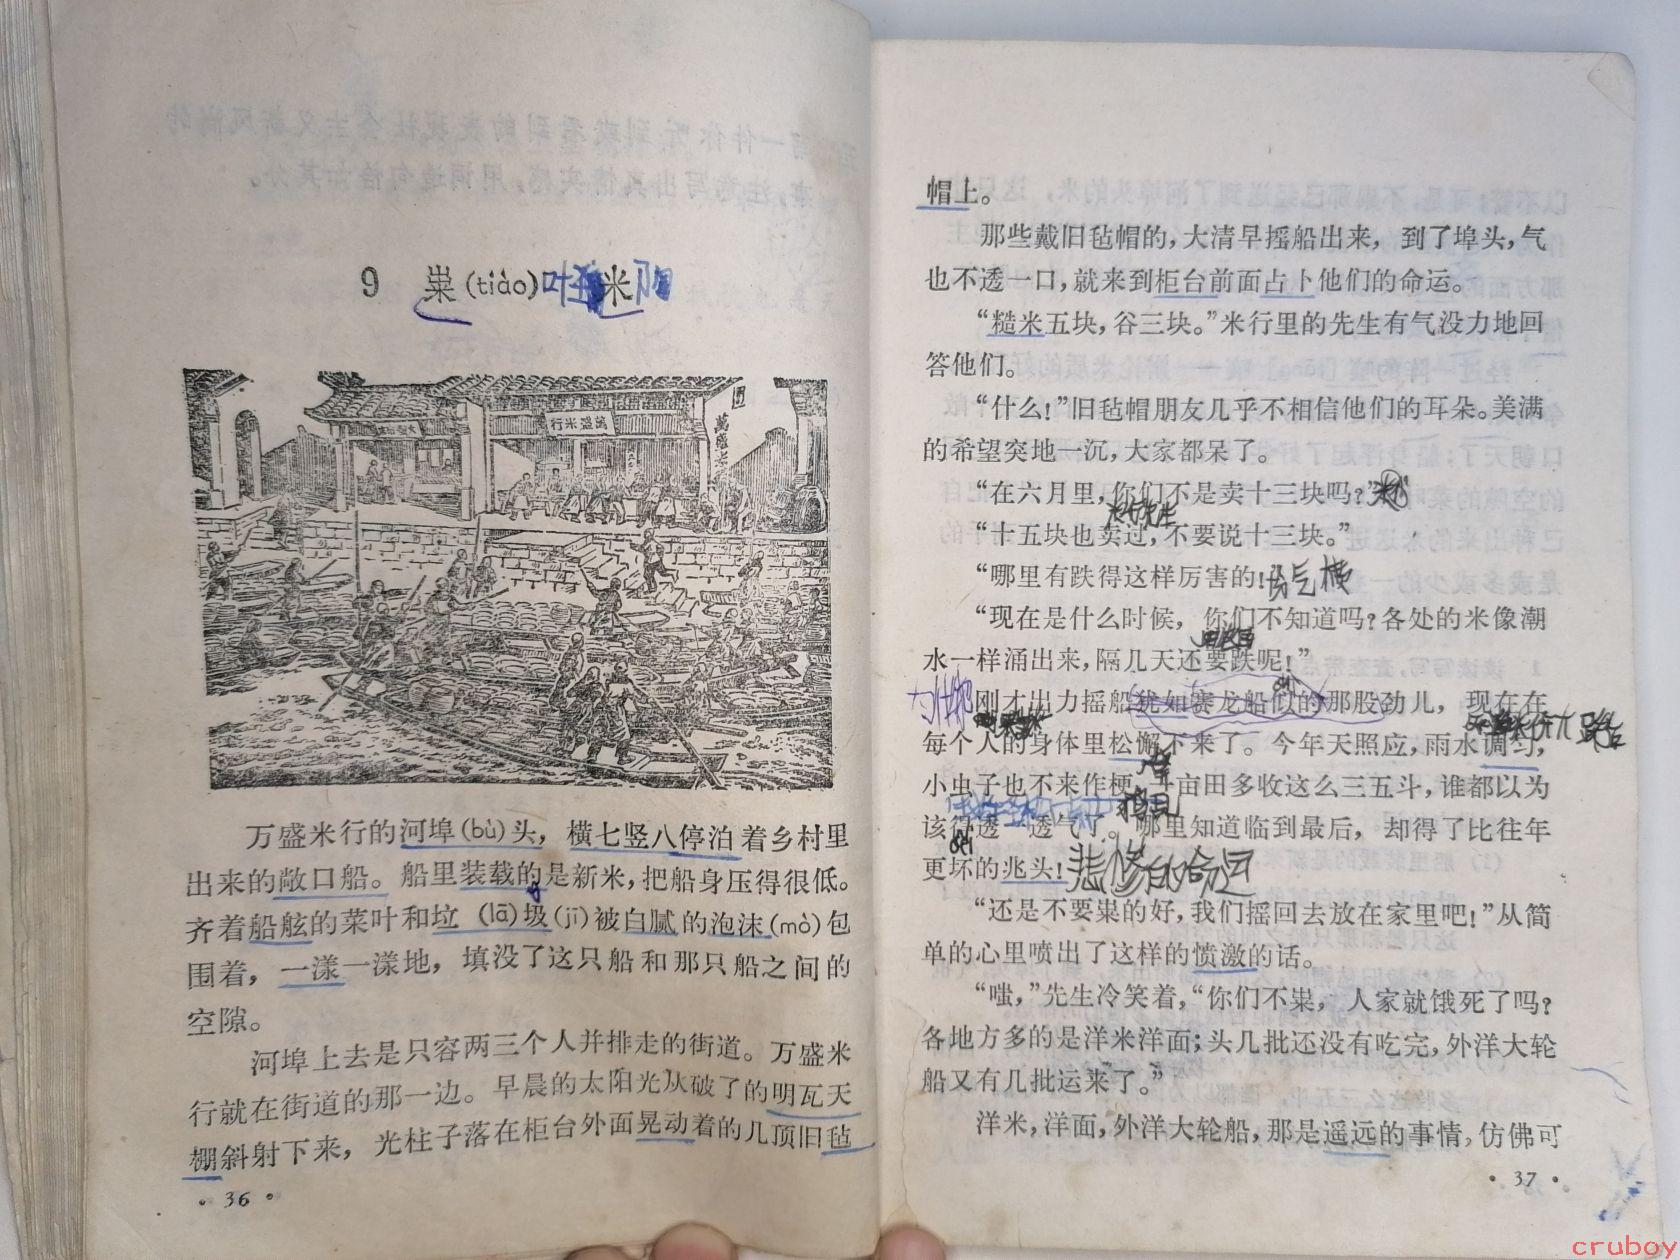 9 粜(tiào)米
萬盛米行
萬盛米
万盛米行的河埠(bù)头，横七竖八停泊着乡村里
出来的敞口船。船里装载的是新米，把船身压得很低。
齐着船舷的菜叶和垃(lā)圾(jī)被白腻的泡沫(mò)包
围着，一漾一漾地，填没了这只船和那只船之间的
空隙。
河埠上去是只容两三个人并排走的街道。万盛米
行就在街道的那一边。早晨的太阳光从破了的明瓦天
棚斜射下来，光柱子落在柜台外面晃动着的几顶旧毡
·36·
帽上。
那些戴旧毡帽的，大清早摇船出来，到了埠头，气
也不透一口，就来到柜台前面占卜他们的命运。
“糙米五块，谷三块。”米行里的先生有气没力地回
答他们。
“什么！”旧毡帽朋友几乎不相信他们的耳朵。美满
的希望突地一沉，大家都呆了。
“在六月里，你们不是卖十三块吗？”
“十五块也卖过，不要说十三块。”
“哪里有跌得这样厉害的！
“现在是什么时候，你们不知道吗？各处的米像潮
水一样涌出来，隔几天还要跌呢！”
刚才出力摇船犹如赛龙船似的那股劲儿，现在在
每个人的身体里松懈下来了。今年天照应，雨水调匀，
小虫子也不来作梗，一亩田多收这么三五斗，谁都以为
该得透一透气了。哪里知道临到最后，却得了比往年
更坏的兆头！悲惨的命运
“还是不要粜的好，我们摇回去放在家里吧！”从简
单的心里喷出了这样的愤激的话。
“嗤，”先生冷笑着，“你们不粜，人家就饿死了吗？
各地方多的是洋米洋面；头几批还没有吃完，外洋大轮
船又有几批运来了。”
洋米，洋面，外洋大轮船，那是遥远的事情，仿佛可
·37·
cruboy